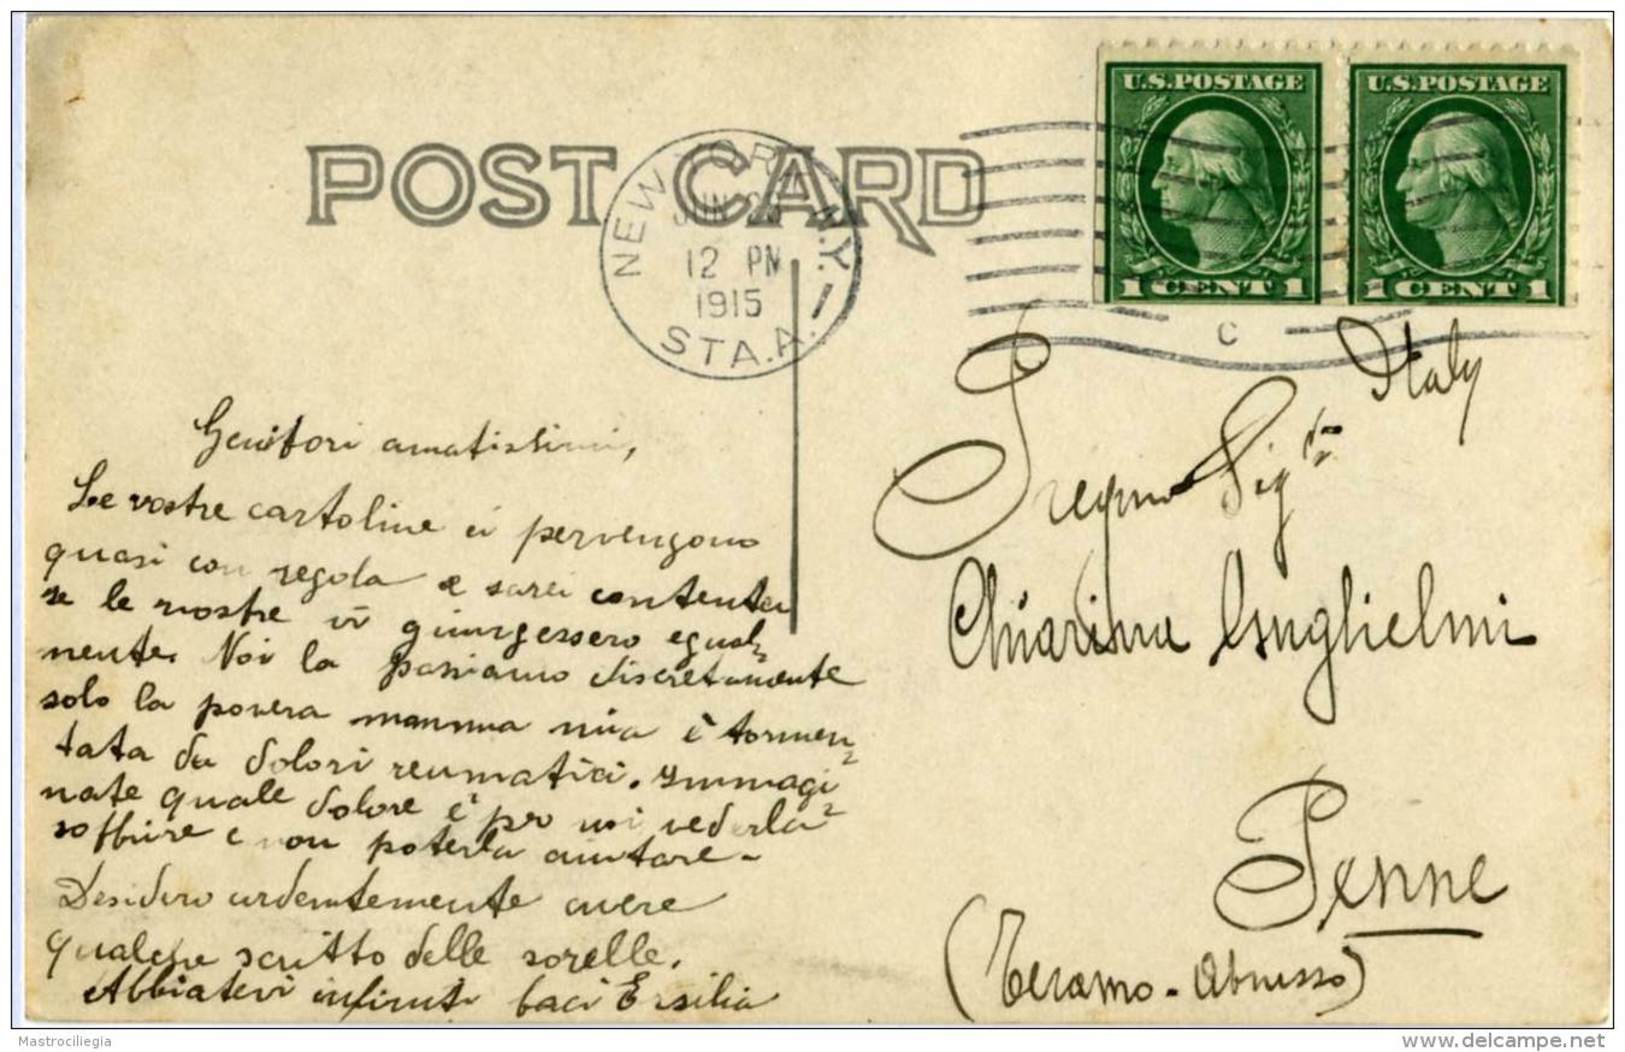 POST CARD
NEW YORK, N.Y.
JUN
12 PM
1915
STA. A.
C
U.S. POSTAGE
1 CENT 1
U.S. POSTAGE
1 CENT 1
Genitori amatissimi,
Le vostre cartoline ci pervengono
quasi con regola e sarei contenta
se le nostre vi giungessero egual-
mente. Noi la passiamo discretamente
solo la povera mamma mia è tormen-
tata da dolori reumatici. Immagi-
nate quale dolore è per noi vederla
soffrire e non poterla aiutare -
Desidero ardentemente avere
qualche scritto delle sorelle.
Abbiatevi infiniti baci Ersilia
Italy
Pregma Sig.ra
Chiarina Guglielmi
Penne
(Teramo - Abruzzo)
Mastrociliegia
delcampe.net